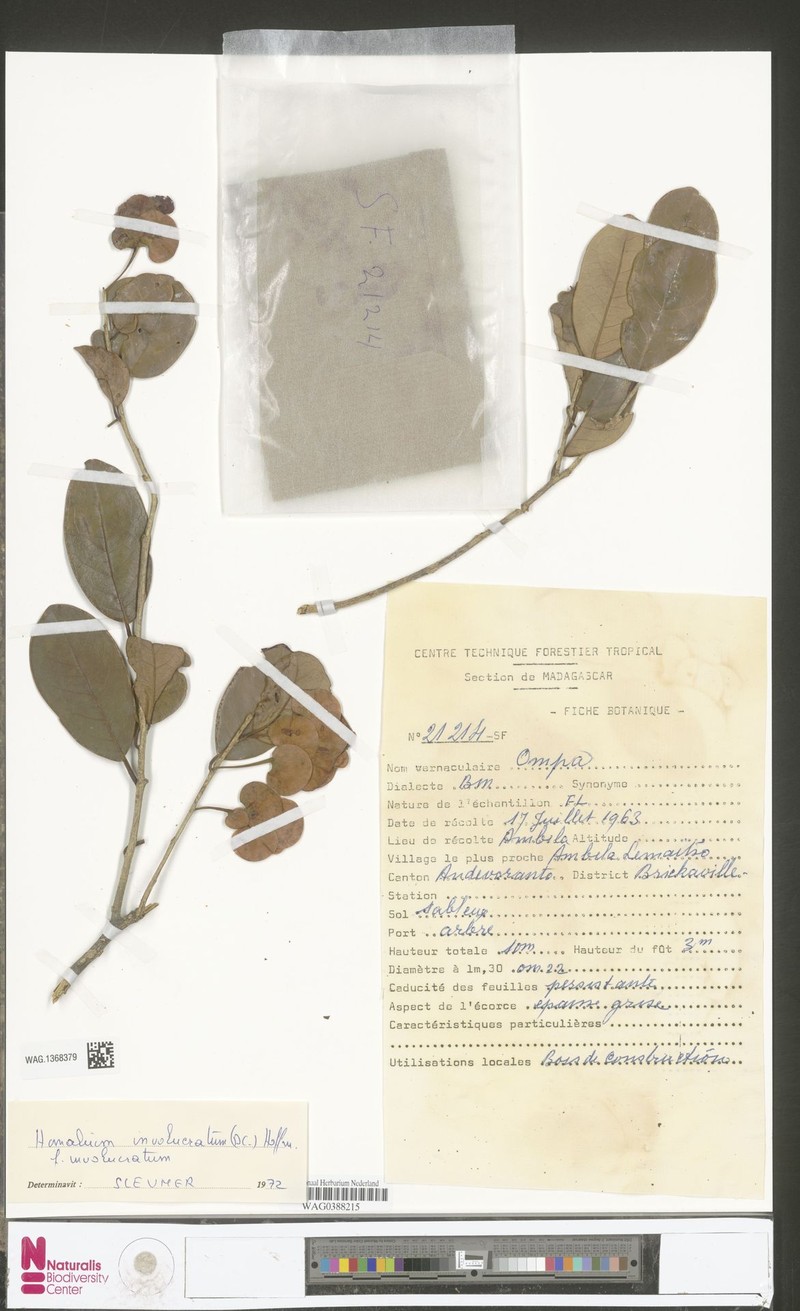 SF. 21214
CENTRE TECHNIQUE FORESTIER TROPICAL
Section de MADAGASCAR
- FICHE BOTANIQUE -
N° 21 214-SF
Nom vernaculaire Ompa
Dialecte Bm Synonyme
Nature de l'échantillon Ft
Date de récolte 17 Juillet 1963
Lieu de récolte Ambila Altitude
Village le plus proche Ambila Lemaitso
Canton Andevoranto District Brickaville
Station
Sol sableux
Port arbre
Hauteur totale 10m Hauteur du fût 3m
Diamètre à 1m,30 0m.22
Caducité des feuilles persistante
Aspect de l'écorce épaisse grise
Caractéristiques particulières
Utilisations locales Bois de construction
WAG.1368379
Homalium involucratum (DC.) Hoffm.
f. involucratum
Determinavit : SLEUMER 1972
Nationaal Herbarium Nederland
WAG0388215
Naturalis
Biodiversity
Center